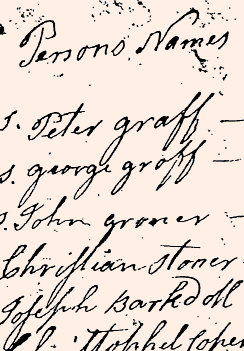 Persons Names
Peter graff
george groff
John groner
Christian Stoner
Joseph Barkdoll
Stophel